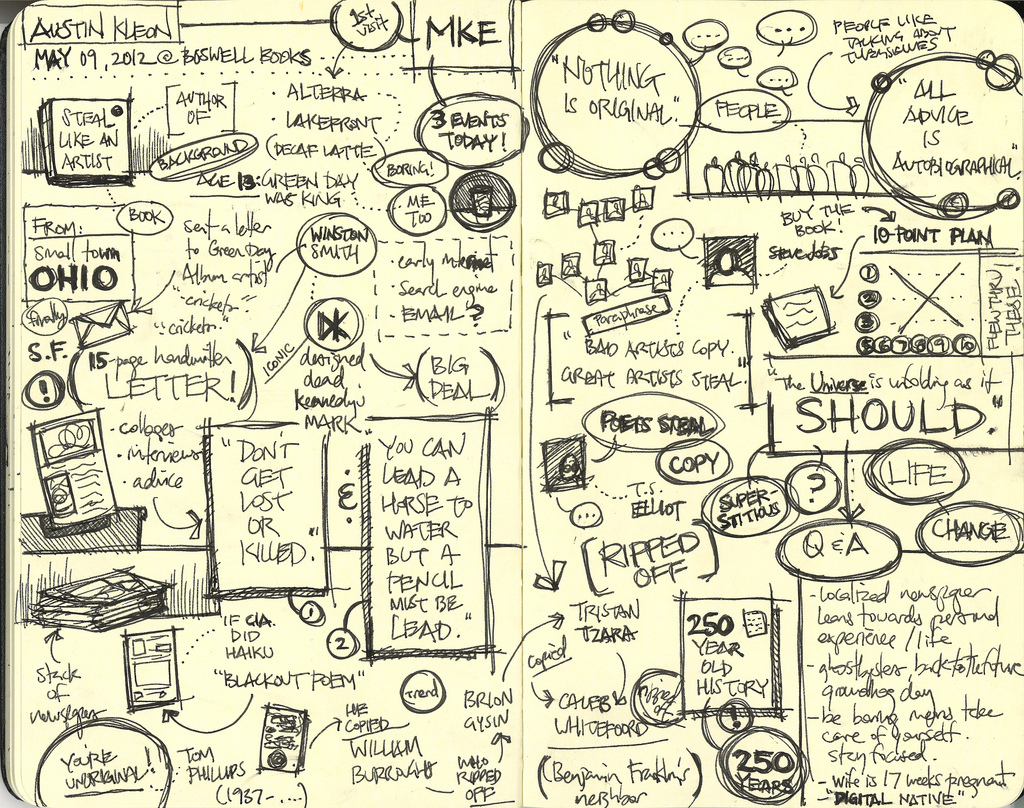 AUSTIN KLEON
MAY 09, 2012 @ BOSWELL BOOKS
1st VISIT
MKE
STEAL
LIKE AN
ARTIST
[AUTHOR
OF]
• ALTERRA
• LAKEFRONT
(DECAF LATTE)
3 EVENTS
TODAY!
BACKGROUND
BORING!
AGE 13: GREEN DAY
WAS KING
ME
TOO
BOOK
FROM:
small town
OHIO
sent a letter
to Green Day
Album artist
"cricket"
"cricket"
WINSTON
SMITH
• early internet
• Search engine
• EMAIL?
finally
S.F.
!
(15-page handwritten
LETTER!)
ICONIC
DK
designed
dead
kennedys
MARK
(BIG
DEAL)
• collages
• interviews
• advice
"DON'T
GET
LOST
OR
KILLED."
1
&
"YOU CAN
LEAD A
HORSE TO
WATER
BUT A
PENCIL
MUST BE
LEAD."
2
stack
of
newspapers
IF CIA
DID
HAIKU
"BLACKOUT POEM"
YOU'RE
UNORIGINAL!
TOM
PHILLIPS
(1937-...)
HE
COPIED
WILLIAM
BURROUGHS
trend
BRION
GYSIN
WHO RIPPED
OFF
"NOTHING
IS ORIGINAL."
PEOPLE
PEOPLE LIKE
TALKING ABOUT
THEMSELVES
"ALL
ADVICE
IS
AUTOBIOGRAPHICAL"
BUY THE
BOOK!
10-POINT PLAN
STEVE JOBS
1
2
3
5 6 7 8 9 10
FLEW THRU
THESE!
Paraphrase
"BAD ARTISTS COPY.
GREAT ARTISTS STEAL."
"The Universe is unfolding as it
SHOULD."
POETS STEAL
COPY
T.S.
ELLIOT
SUPER-
STITIOUS
?
LIFE
CHANGE
Q & A
[RIPPED
OFF]
TRISTAN
TZARA
copied
CALEB
WHITEFOORD
ripped
off
(Benjamin Franklin's
neighbor)
250
YEAR
OLD
HISTORY
!
250
YEARS
- localized newspaper
leans towards personal
experience / life
- ghostbusters, back to the future
groundhog day
- be boring means take
care of yourself.
stay focused.
- wife is 17 weeks pregnant
"DIGITAL NATIVE"